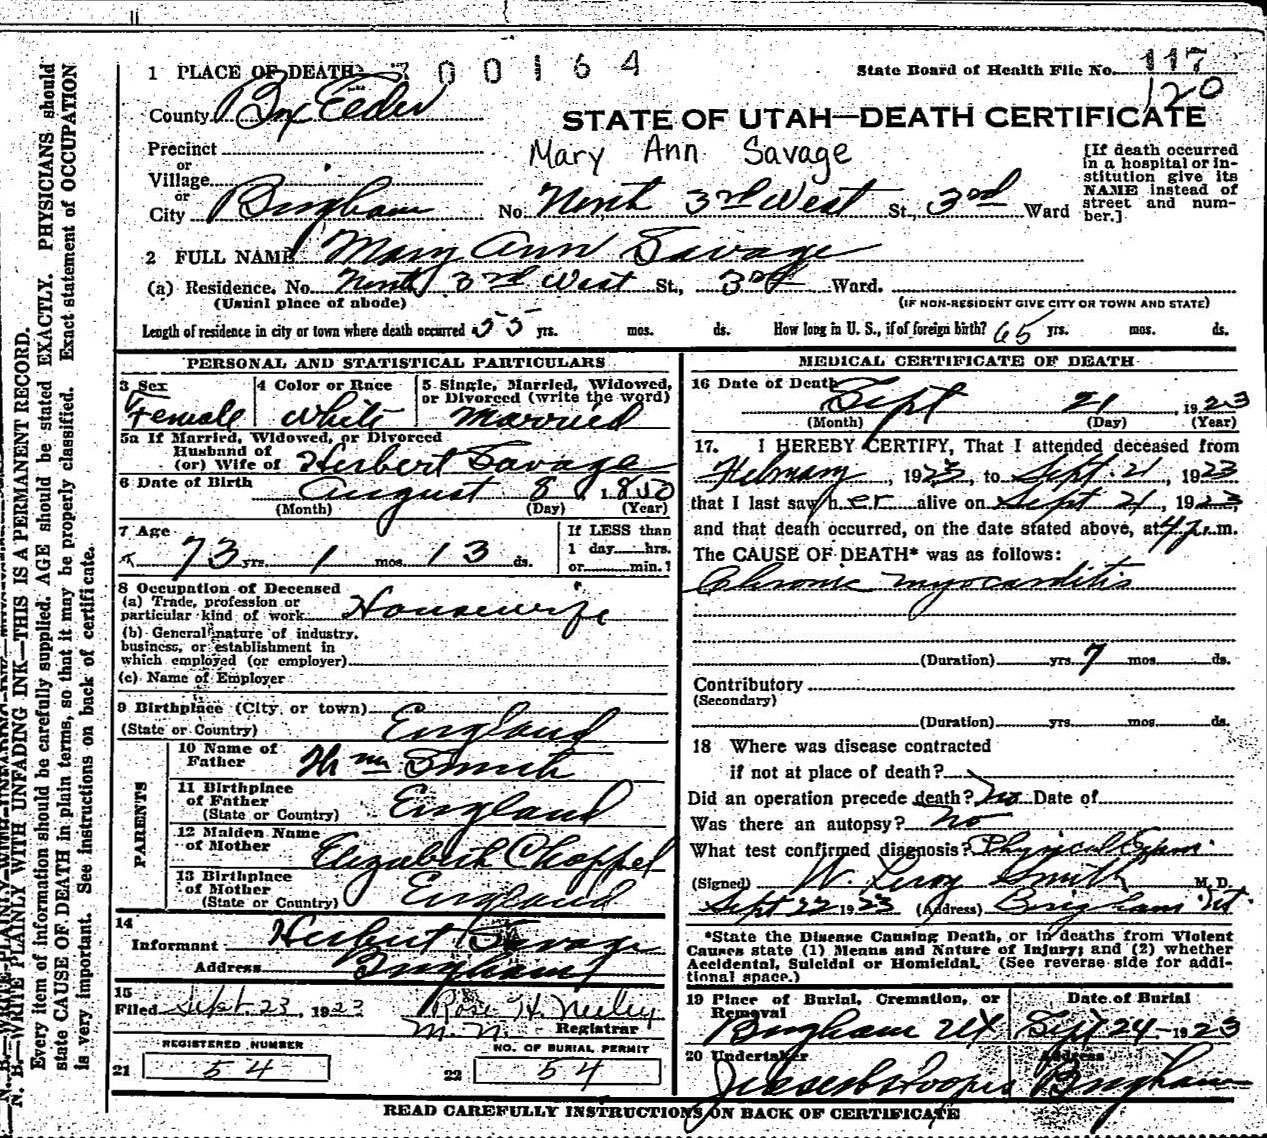 1 PLACE OF DEATH 300164
State Board of Health File No. 117
120
County Box Elder
STATE OF UTAH—DEATH CERTIFICATE
Mary Ann Savage
Precinct
or
Village
or
City Brigham No. North 3rd West St., 3rd Ward
[If death occurred
in a hospital or in-
stitution give its
NAME instead of
street and num-
ber.]
2 FULL NAME Mary Ann Savage
(a) Residence. No. North 3rd West St., 3rd Ward.
(Usual place of abode) (IF NON-RESIDENT GIVE CITY OR TOWN AND STATE)
Length of residence in city or town where death occurred 55 yrs. mos. ds. How long in U. S., if of foreign birth? 65 yrs. mos. ds.
PERSONAL AND STATISTICAL PARTICULARS
3 Sex
Female
4 Color or Race
White
5 Single, Married, Widowed,
or Divorced (write the word)
Married
5a If Married, Widowed, or Divorced
Husband of
(or) Wife of Herbert Savage
6 Date of Birth August 8 1850
(Month) (Day) (Year)
7 Age
73 yrs. 1 mos. 13 ds.
If LESS than
1 day hrs.
or min.?
8 Occupation of Deceased
(a) Trade, profession or
particular kind of work Housewife
(b) General nature of industry,
business, or establishment in
which employed (or employer)
(c) Name of Employer
9 Birthplace (City or town)
(State or Country) England
PARENTS
10 Name of
Father Wm Smith
11 Birthplace
of Father
(State or Country) England
12 Maiden Name
of Mother Elizabeth Choppel
13 Birthplace
of Mother
(State or Country) England
14
Informant Herbert Savage
Address Brigham
15
Filed Sept. 23, 1923 Rose H. Neeley
M. N. Registrar
REGISTERED NUMBER
21 54
NO. OF BURIAL PERMIT
22 54
MEDICAL CERTIFICATE OF DEATH
16 Date of Death
Sept 21, 1923
(Month) (Day) (Year)
17. I HEREBY CERTIFY, That I attended deceased from
February, 1923, to Sept. 21, 1923
that I last saw her alive on Sept 21, 1923,
and that death occurred, on the date stated above, at 4 p.m.
The CAUSE OF DEATH* was as follows:
Chronic myocarditis
(Duration) yrs. 7 mos. ds.
Contributory
(Secondary)
(Duration) yrs. mos. ds.
18 Where was disease contracted
if not at place of death?
Did an operation precede death? No Date of
Was there an autopsy? No
What test confirmed diagnosis? Physical Exam.
(Signed) W. Leroy Smith M. D.
Sept 22 1923 (Address) Brigham Ut.
*State the Disease Causing Death, or in deaths from Violent
Causes state (1) Means and Nature of Injury; and (2) whether
Accidental, Suicidal or Homicidal. (See reverse side for addi-
tional space.)
19 Place of Burial, Cremation, or
Removal
Brigham Ut
Date of Burial
Sept 24-1923
20 Undertaker
Address
Brigham
READ CAREFULLY INSTRUCTIONS ON BACK OF CERTIFICATE
N. B.—WRITE PLAINLY WITH UNFADING INK—THIS IS A PERMANENT RECORD.
Every item of information should be carefully supplied. AGE should be stated EXACTLY. PHYSICIANS should
state CAUSE OF DEATH in plain terms, so that it may be properly classified. Exact statement of OCCUPATION
is very important. See instructions on back of certificate.